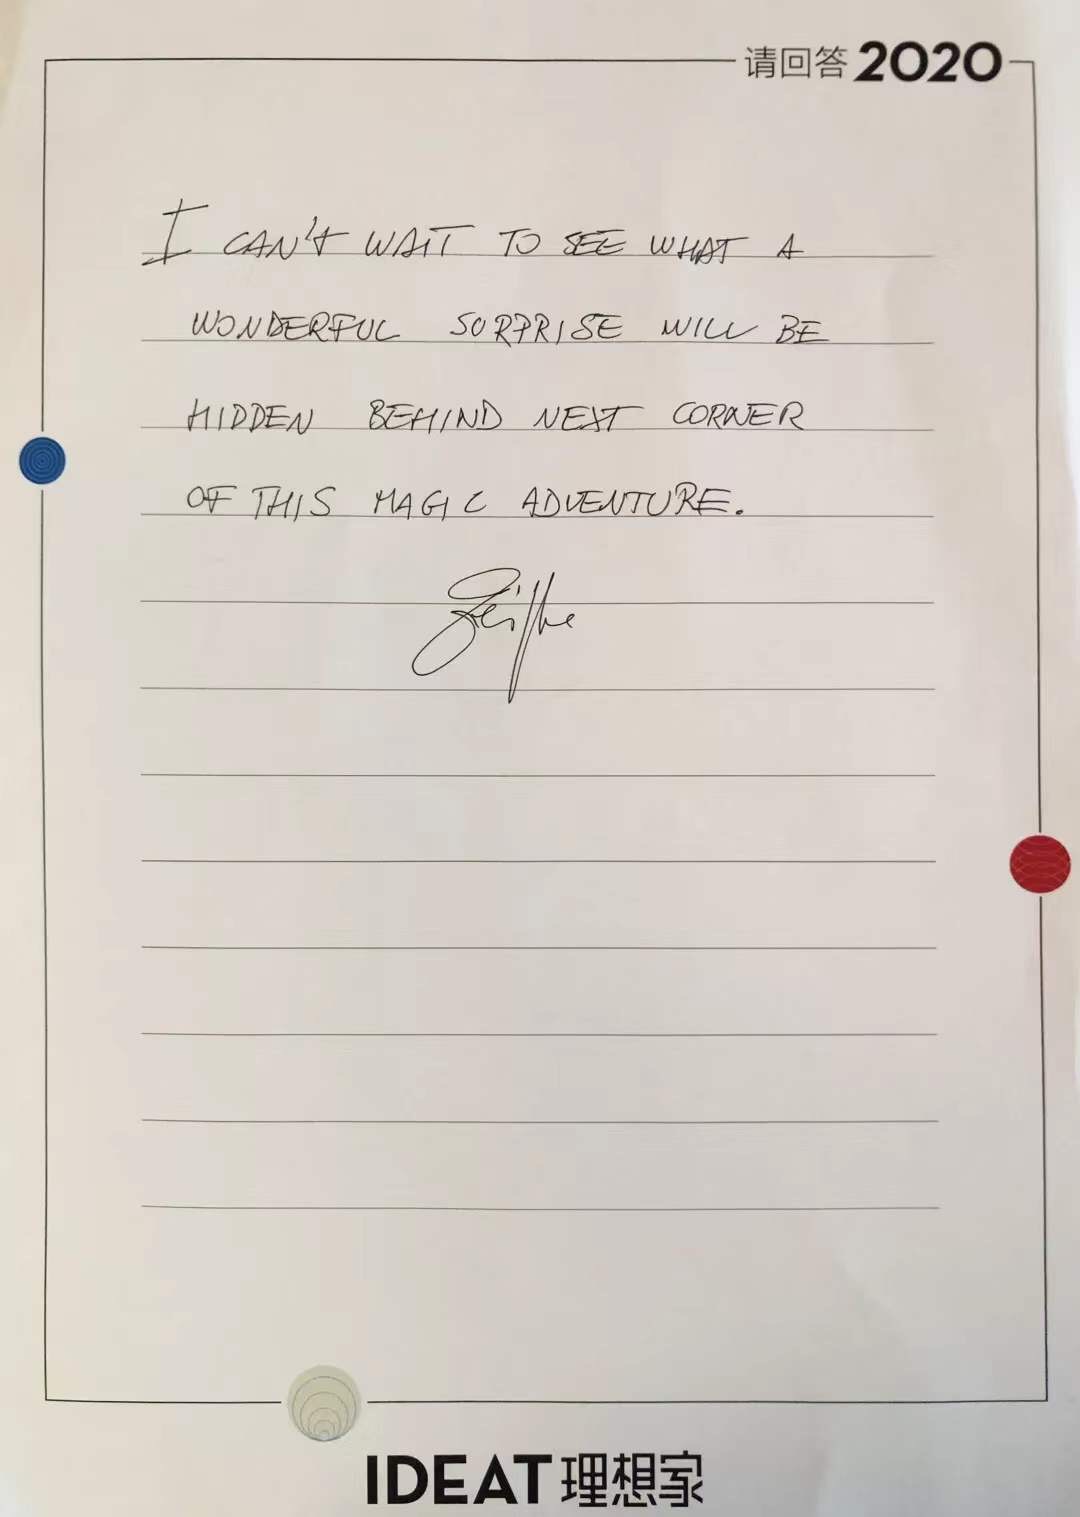 请回答2020
I CAN'T WAIT TO SEE WHAT A
WONDERFUL SORPRISE WILL BE
HIDDEN BEHIND NEXT CORNER
OF THIS MAGIC ADVENTURE.
IDEAT理想家